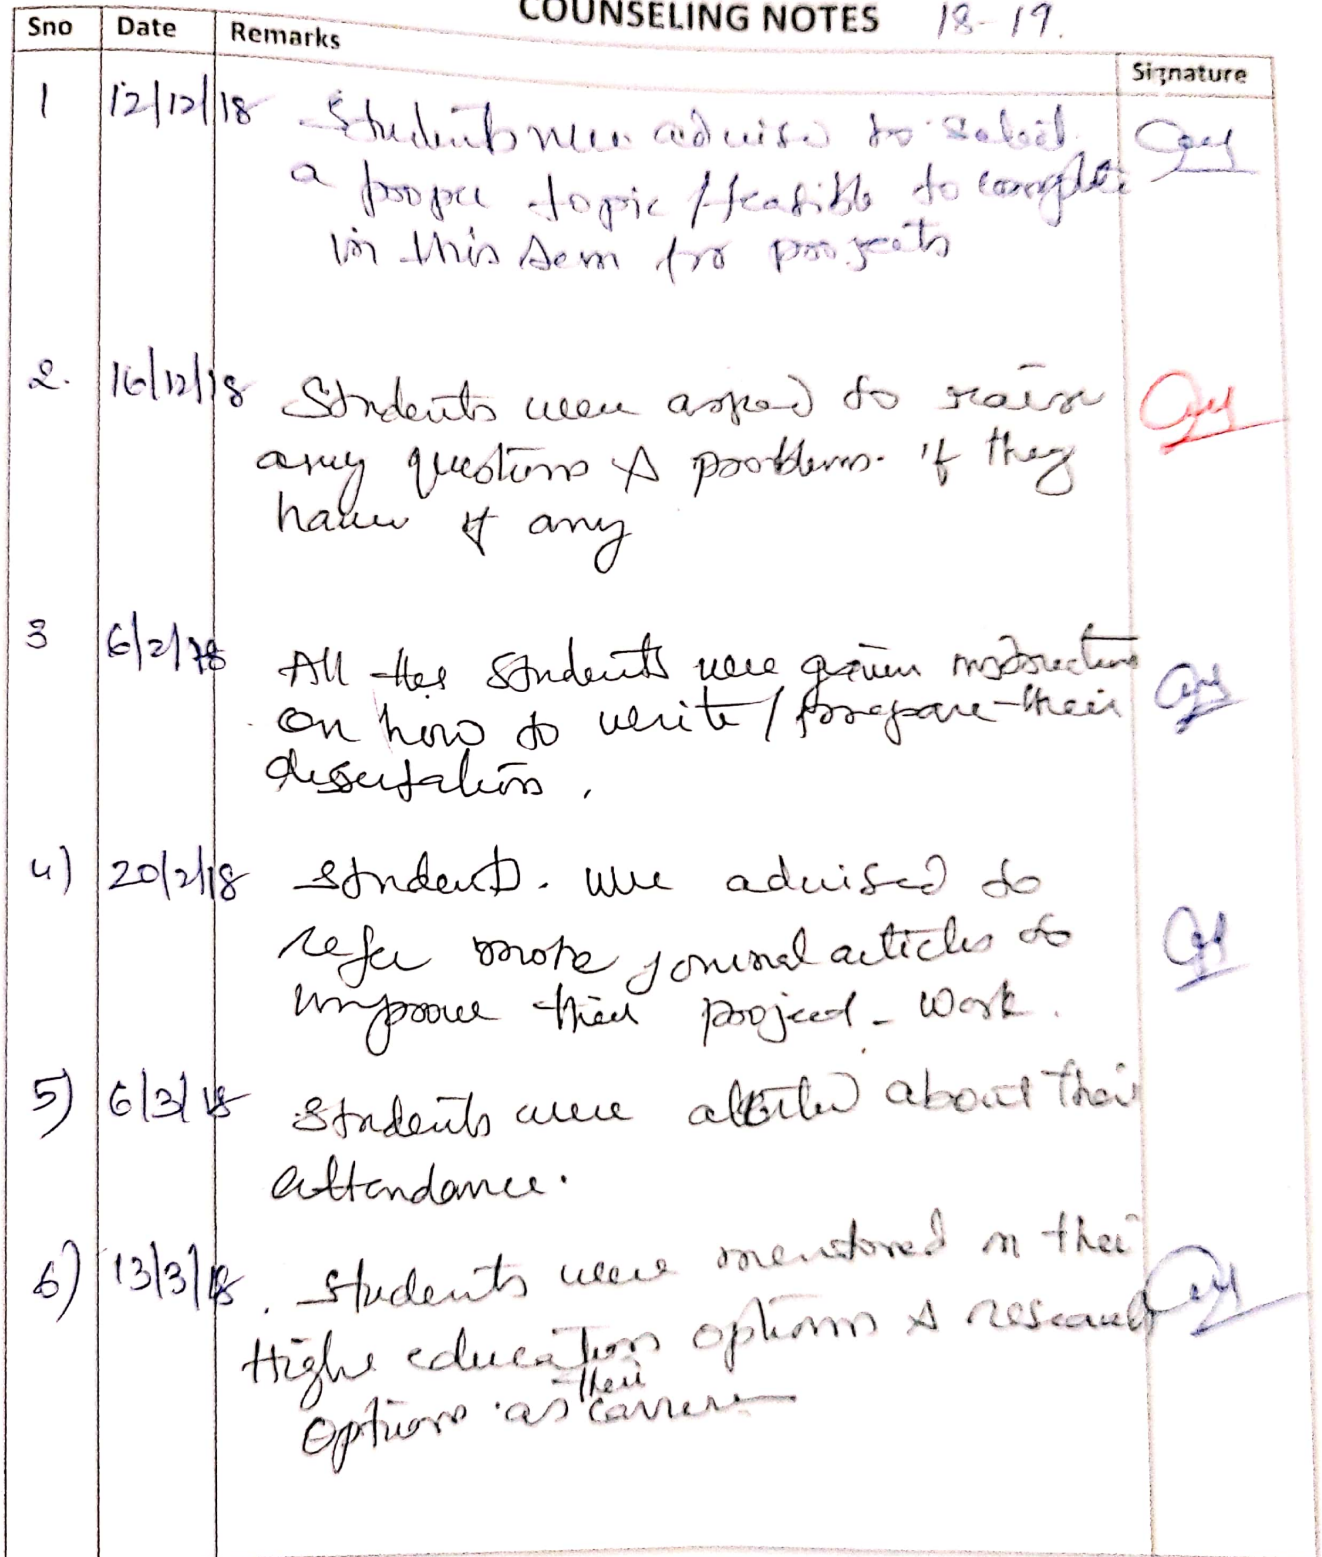 COUNSELING NOTES 18-19.
Sno Date Remarks Signature
1 12/12/18 Students were advise to select
a proper topic / feasible to complete
in this sem for projects
2. 16/12/18 Students were asked to raise
any questions & problems. if they
have if any
3 6/2/18 All the students were given instructions
on how to write / prepare their
dissertation.
4) 20/2/18 Students. were advised to
refer more journal articles to
improve their project - work.
5) 6/3/18 Students were alerted about their
attendance.
6) 13/3/18. Students were mentored in their
Highe education options & research
options as their carrere